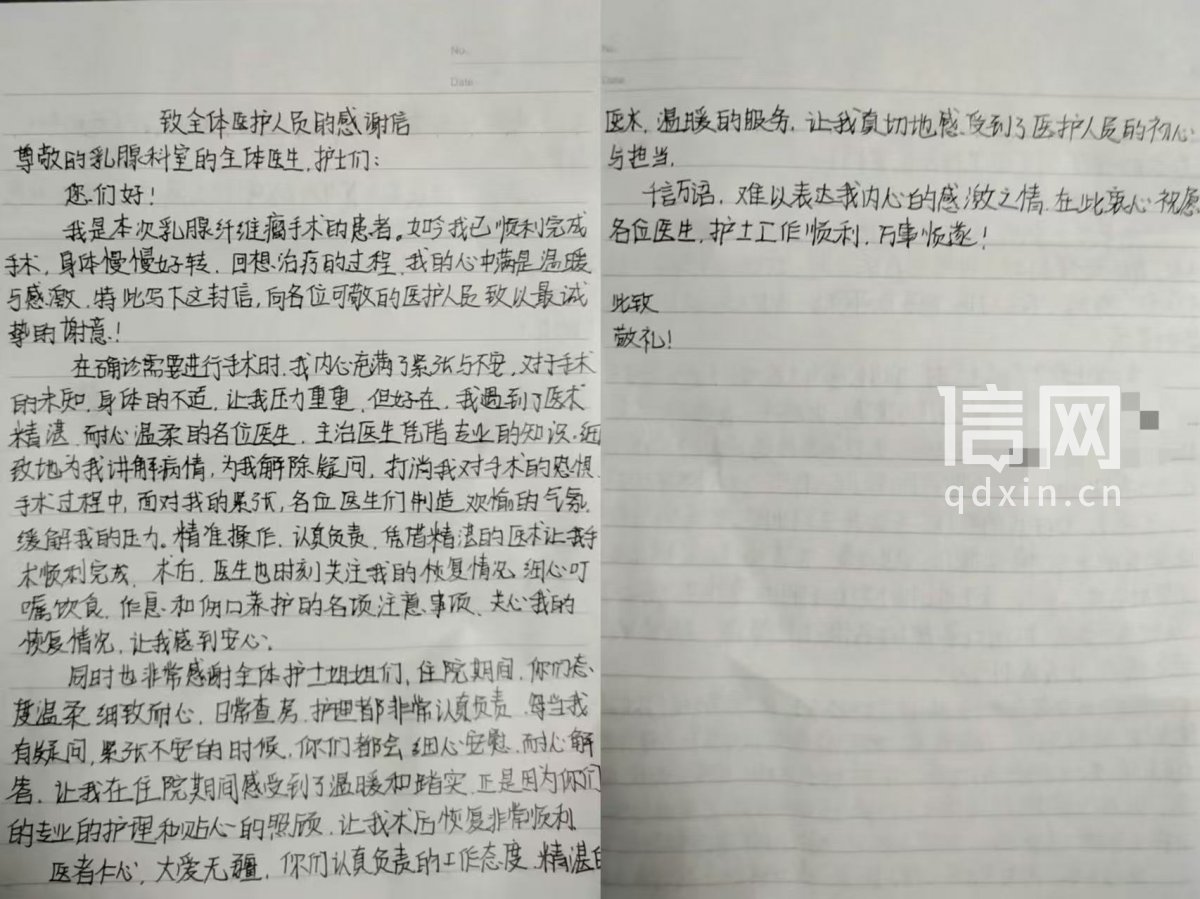 No.
Date
致全体医护人员的感谢信
尊敬的乳腺科室的全体医生,护士们:
您们好!
我是本次乳腺纤维瘤手术的患者。如吟我已顺利完成
手术,身体慢慢好转,回想治疗的过程,我的心中满是温暖
与感激,特此写下这封信,向各位可敬的医护人员致以最诚
挚的谢意!
在确诊需要进行手术时,我内心充满了紧张与不安,对于手术
的未知,身体的不适,让我压力重重,但好在,我遇到了医术
精湛,耐心温柔的各位医生,主治医生凭借专业的知识,细
致地为我讲解病情,为我解除疑问,打消我对手术的恐惧,
手术过程中,面对我的紧张,各位医生们制造欢愉的气氛,
缓解我的压力。精准操作,认真负责,凭借精湛的医术让我手
术顺利完成,术后,医生也时刻关注我的恢复情况,细心叮
嘱饮食,作息和伤口养护的各项注意事项,关心我的
恢复情况,让我感到安心。
同时也非常感谢全体护士姐姐们,住院期间,你们态
度温柔,细致耐心,日常查房,护理都非常认真负责,每当我
有疑问,紧张不安的时候,你们都会细心安慰,耐心解
答,让我在住院期间感受到了温暖和踏实,正是因为你们
的专业的护理和贴心的照顾,让我术后恢复非常顺利
医者仁心,大爱无疆,你们认真负责的工作态度,精湛的
No.
Date
医术,温暖的服务,让我真切地感受到了医护人员的初心
与担当,
千言万语,难以表达我内心的感激之情,在此衷心祝愿
各位医生,护士工作顺利,万事顺遂!
此致
敬礼!
信网
qdxin.cn